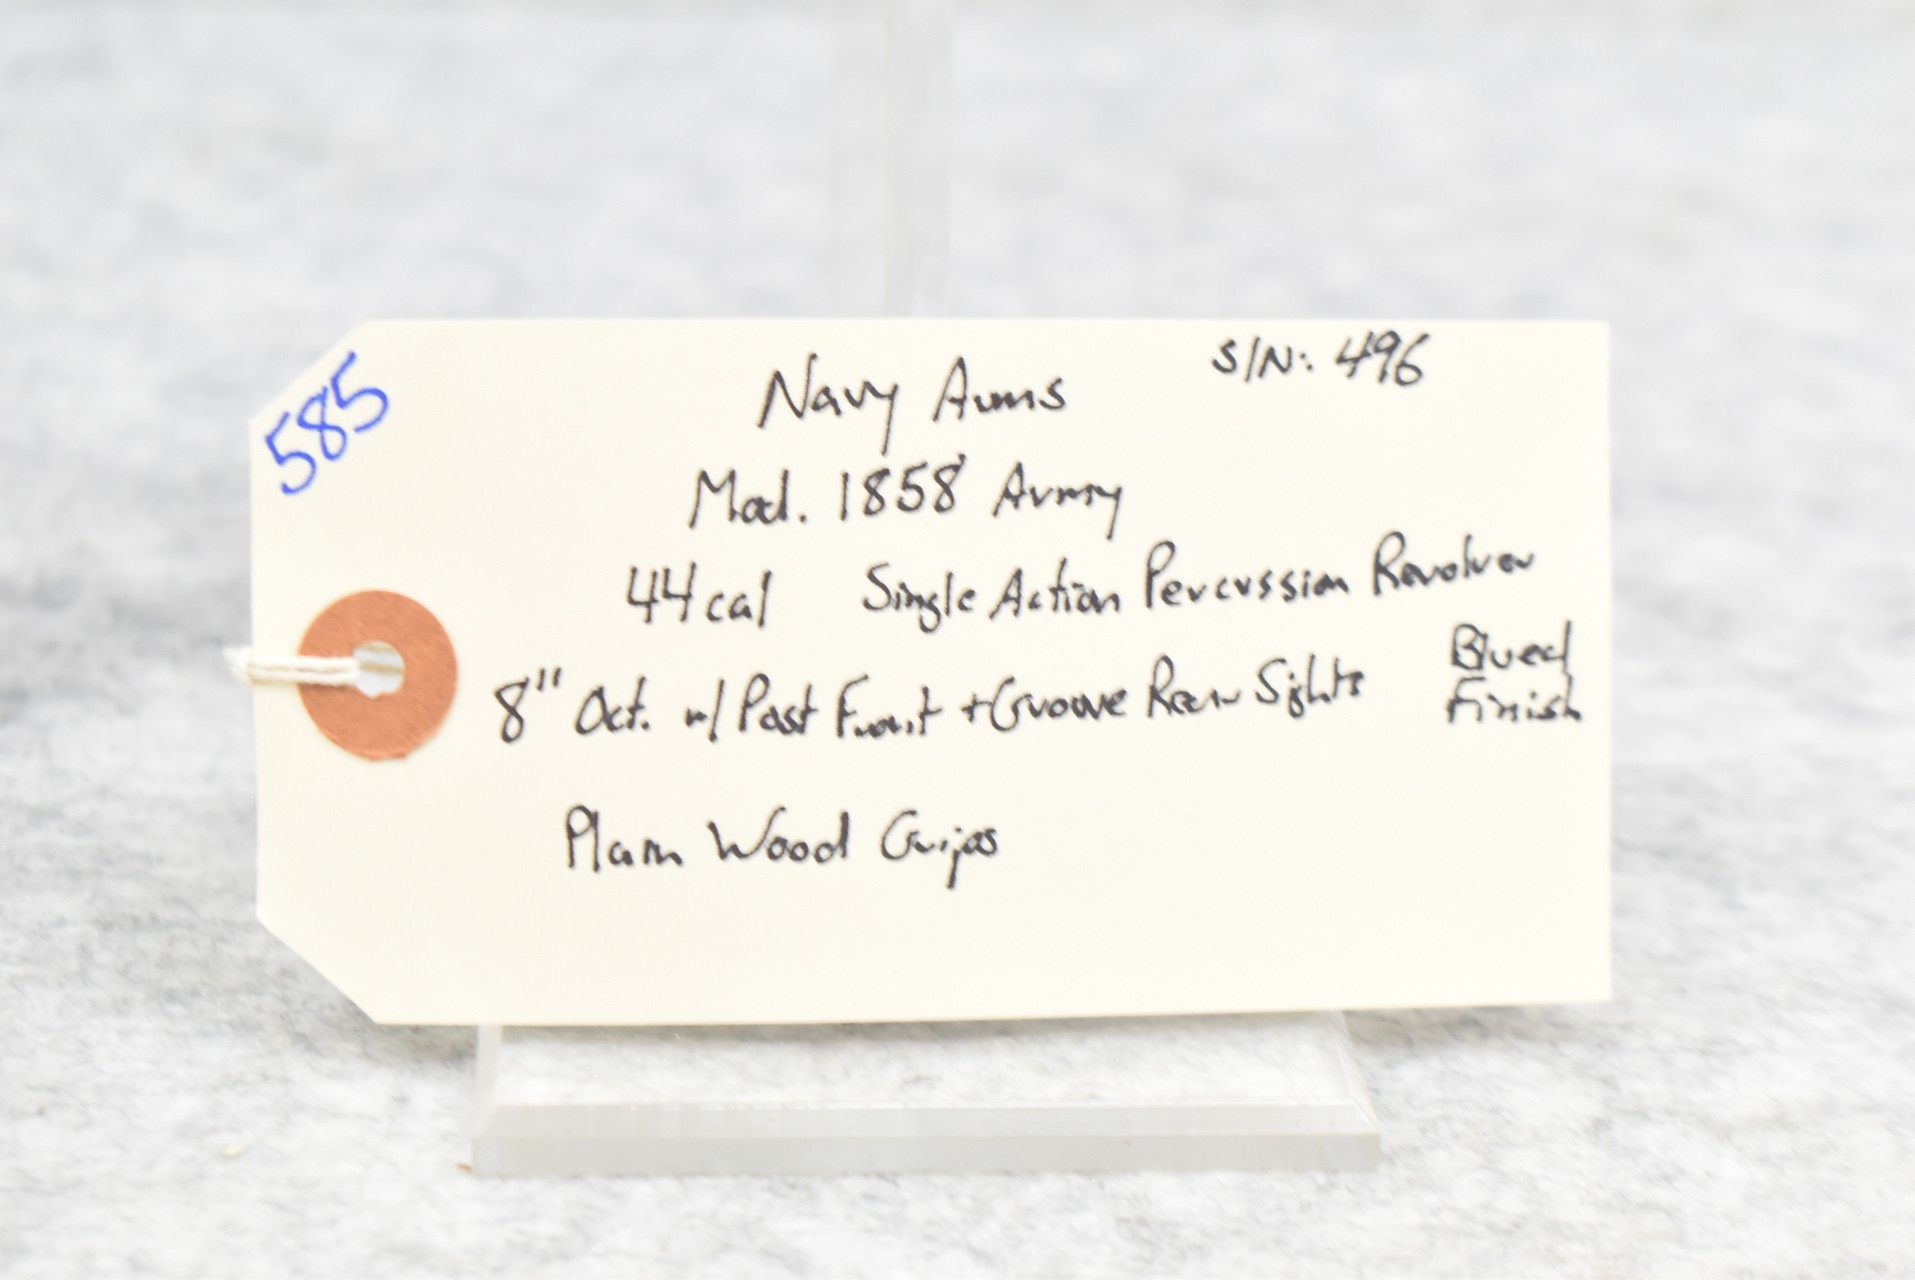 585
Navy Arms
S/N: 496
Mod. 1858 Army
44 cal Single Action Percussion Revolver
8" Oct. w/ Post Front + Groove Rear Sights
Blued
Finish
Plain Wood Grips